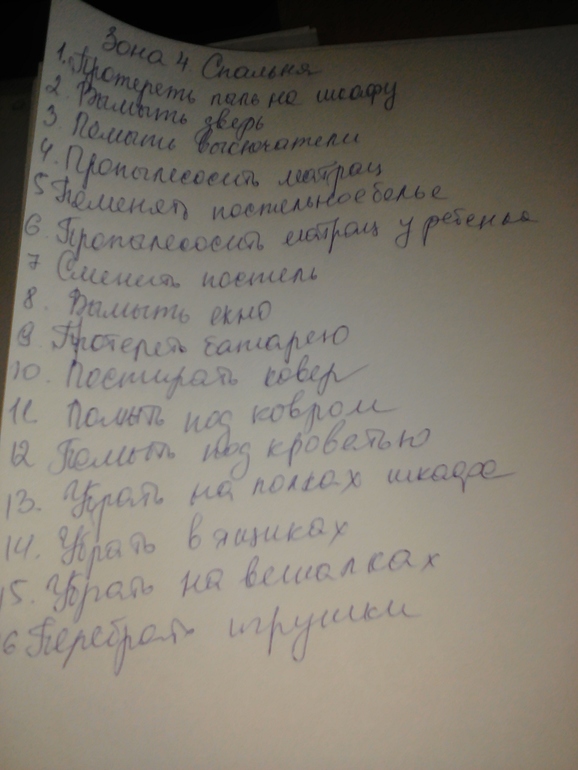 Зона 4. Спальня
1. Протереть пыль на шкафу
2. Вымыть дверь
3. Помыть выключатели
4. Пропылесосить матрац
5 Поменять постельное белье
6. Пропылесосить матрац у ребенка
7 Сменить постель
8. Вымыть окно
9. Протереть батарею
10. Постирать ковер
11. Помыть под ковром
12 Помыть под кроватью
13. Убрать на полках шкафа
14. Убрать в ящиках
15. Убрать на вешалках
6 Перебрать игрушки